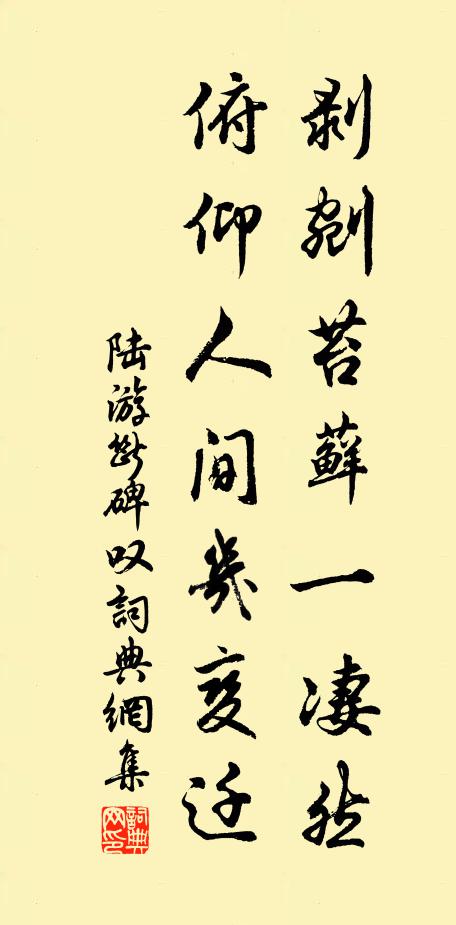 剥剜苔藓一凄然
俯仰人间几变迁
陆游断碑叹詞典網集
詞典网印